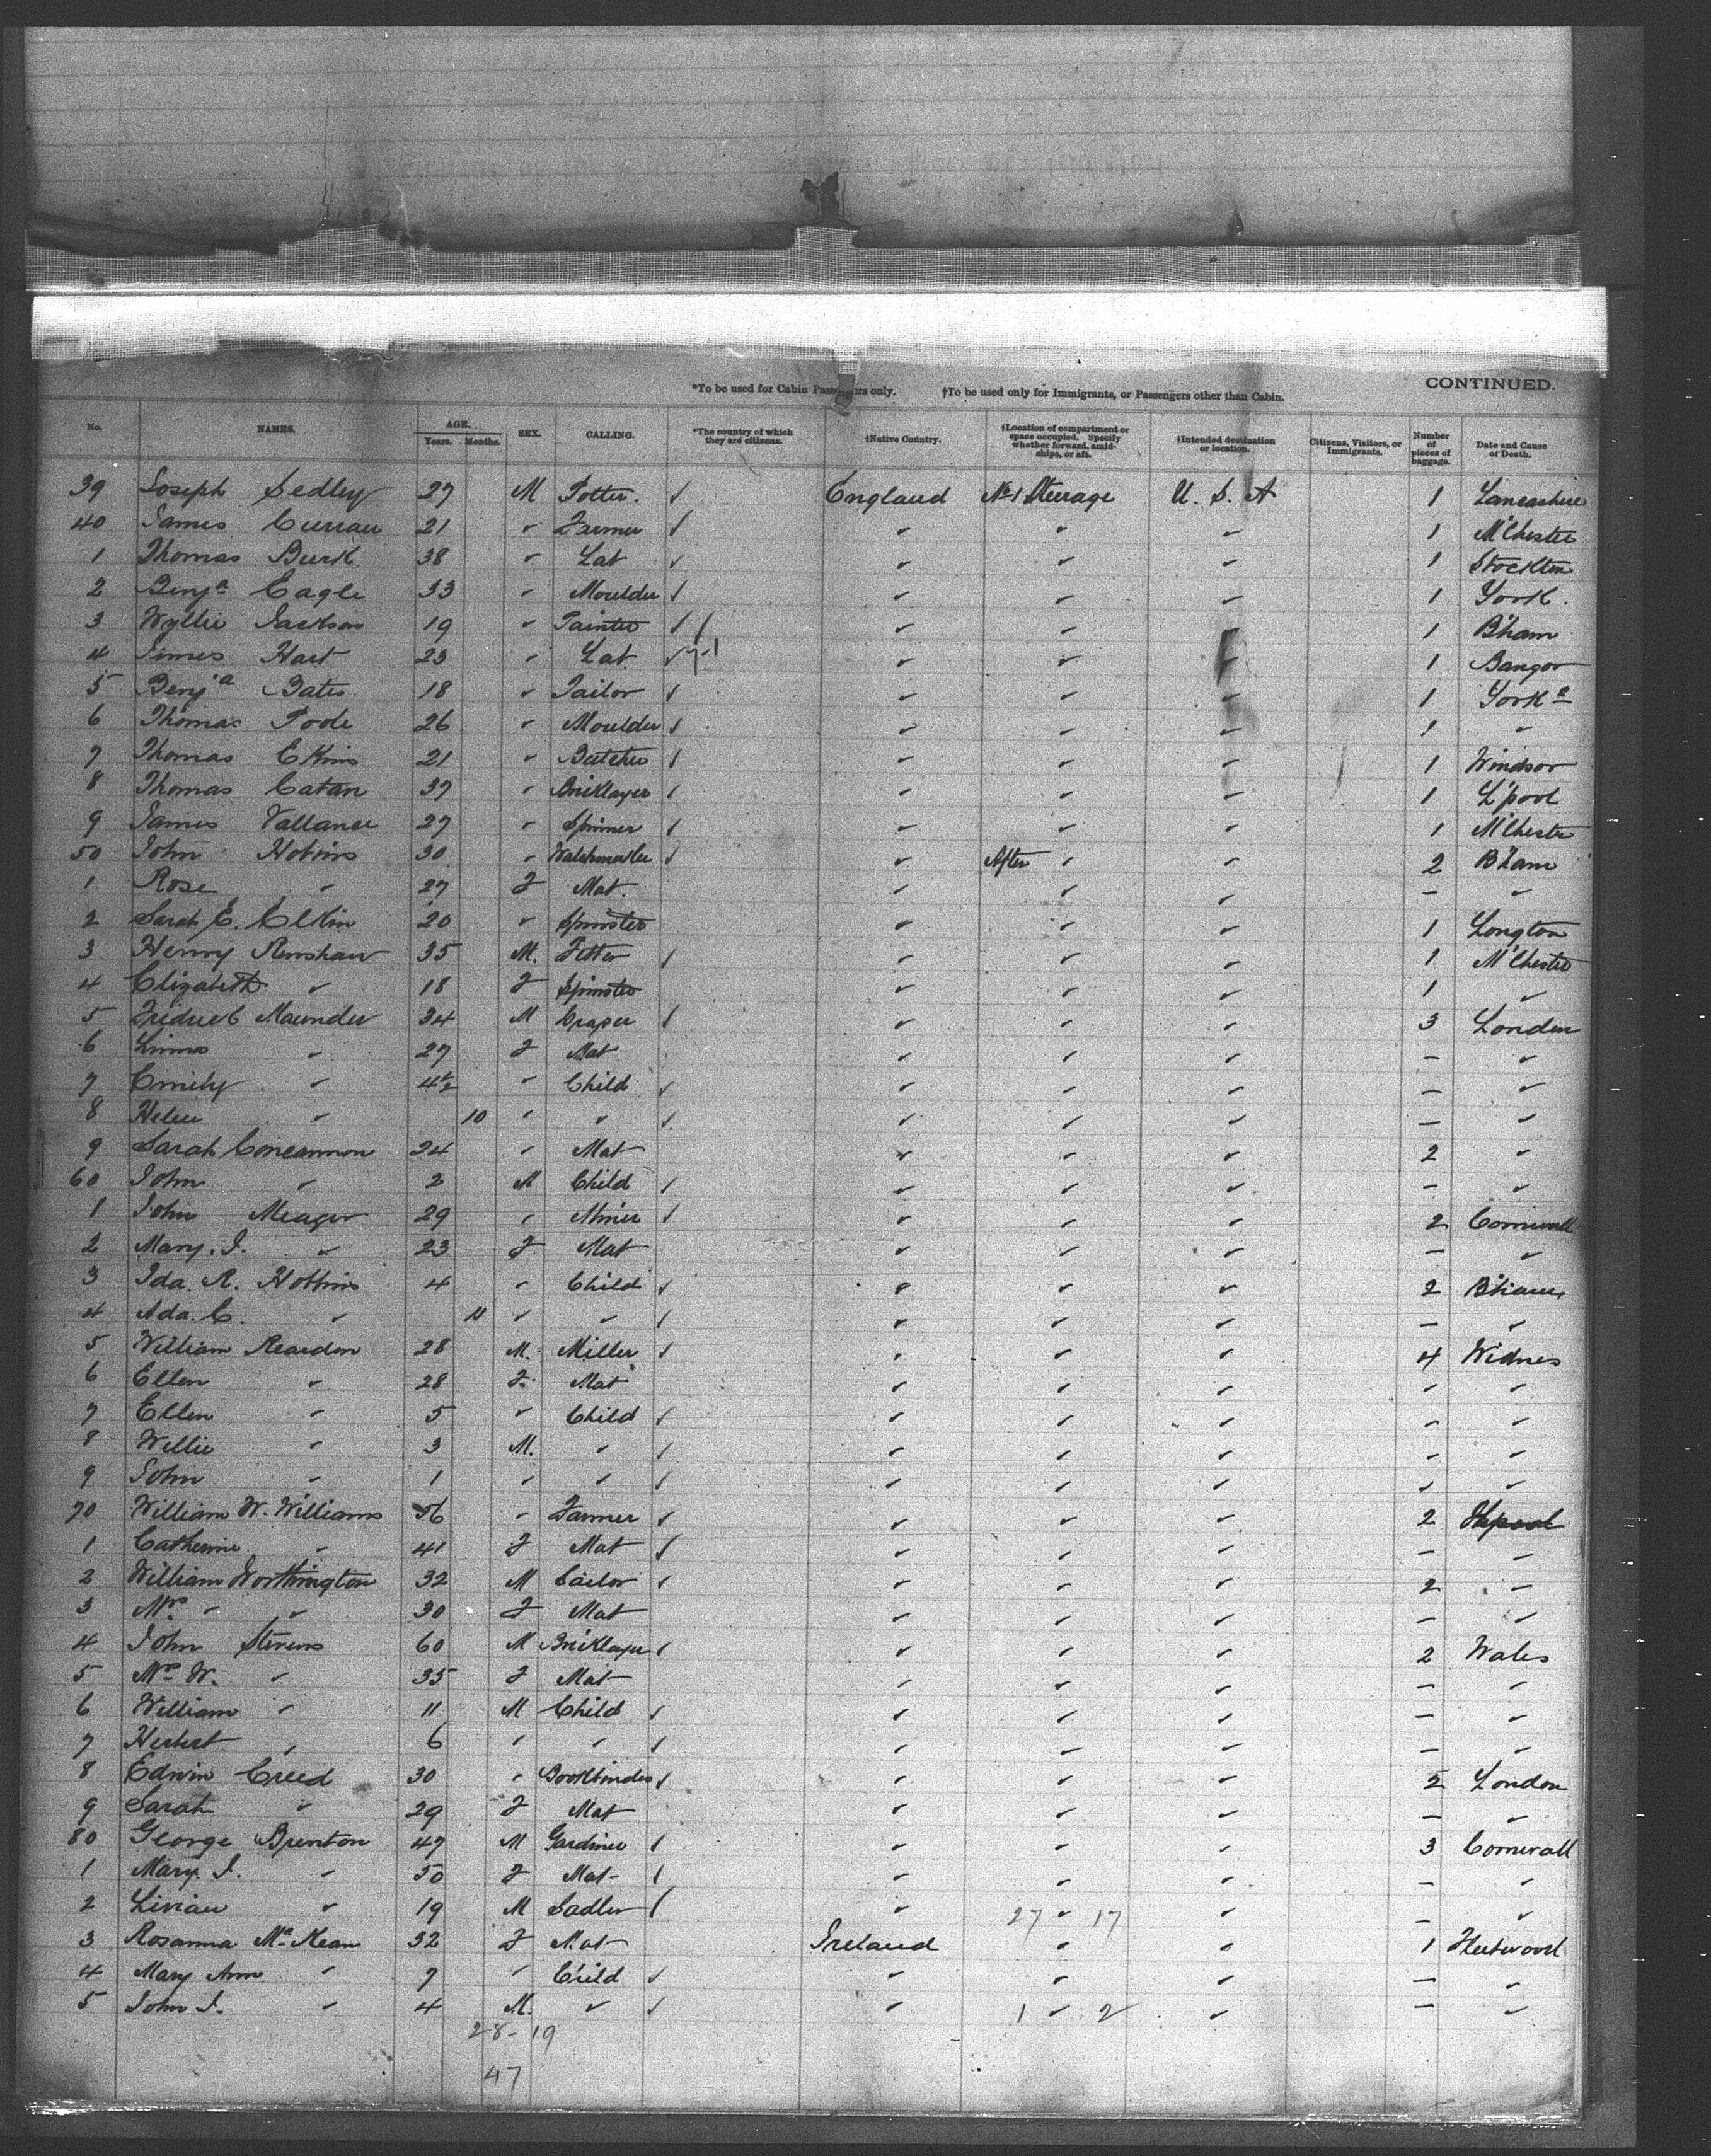 *To be used for Cabin Passengers only. †To be used only for Immigrants, or Passengers other than Cabin. CONTINUED.
No. NAMES. AGE. Years. Months. SEX. CALLING. *The country of which they are citizens. †Native Country. †Location of compartment or space occupied. Specify whether forward, amidships, or aft. †Intended destination or location. Citizens, Visitors, or Immigrants. Number of pieces of baggage. Date and Cause of Death.
39 Joseph Sedley 27 M Potter. England No 1 Steerage U. S. A 1 Lancashire
40 James Curran 21 " Farmer " " " 1 M'Chester
1 Thomas Burk 38 " Lab " " " 1 Stockton
2 Benja Eagle 33 " Moulder " " " 1 York.
3 Wyllie Jackson 19 " Painter " " " 1 B'ham
4 James Hart 23 " Lab " " " 1 Bangor
5 Benja Bates 18 " Tailor " " " 1 Yorks
6 Thomas Poole 26 " Moulder " " " 1 "
7 Thomas Elkins 21 " Butcher " " " 1 Windsor
8 Thomas Catan 37 " Bricklayer " " " 1 L'pool
9 James Vallance 27 " Spinner " " " 1 M'Chester
50 John Hobins 30 " Watchmaker " After " " 2 B'ham
1 Rose " 27 F Mat. " " " - "
2 Sarah E. Elkin 20 " Spinster " " " 1 Longton
3 Henry Renshaw 35 M. Fitter " " " 1 M'Chester
4 Elizabeth " 18 F Spinster " " " 1 "
5 Maunder 34 M Draper " " " 3 London
6 " 27 F Mat " " " - "
7 Emily " 4½ " Child " " " - "
8 Helen " 10 " " " " " - "
9 Sarah Concannon 24 " Mat " " " 2 "
60 John " 2 M Child " " " - "
1 John Meager 29 " Miner " " " 2 Cornwall
2 Mary. J. " 23 F Mat " " " - "
3 Ida. R. Hobbins 4 " Child " " " 2 B'ham
4 Ada. C. " 11 " " " " " - "
5 William Reardon 28 M. Miller " " " 4 Widnes
6 Ellen " 28 F. Mat " " " " "
7 Ellen " 5 " Child " " " " "
8 Willie " 3 M. " " " " " "
9 John " 1 " " " " " " "
70 William W. Williams 56 " Farmer " " " 2
1 Catherine " 41 F Mat " " " - "
2 William Worthington 32 M Tailor " " " 2 "
3 Mrs " " 30 F Mat " " " - "
4 John Stevens 60 M Bricklayer " " " 2 Wales
5 Mrs W. " 35 F Mat " " " - "
6 William " 11 M Child " " " - "
7 Herbert " 6 " " " " " - "
8 Edwin Creed 30 " Bookbinder " " " 2 London
9 Sarah " 29 F Mat " " " - "
80 George Brenton 47 M Gardiner " " " 3 Cornwall
1 Mary. J. " 50 F Mat " " " - "
2 " 19 M Sadler " " " - "
27 17
3 Rosanna McKean 32 F Mat Ireland " " 1 Fleetwood
4 Mary Ann " 7 " Child " " " - "
5 John J. " 4 M. " " " " - "
1 2
28-19
47